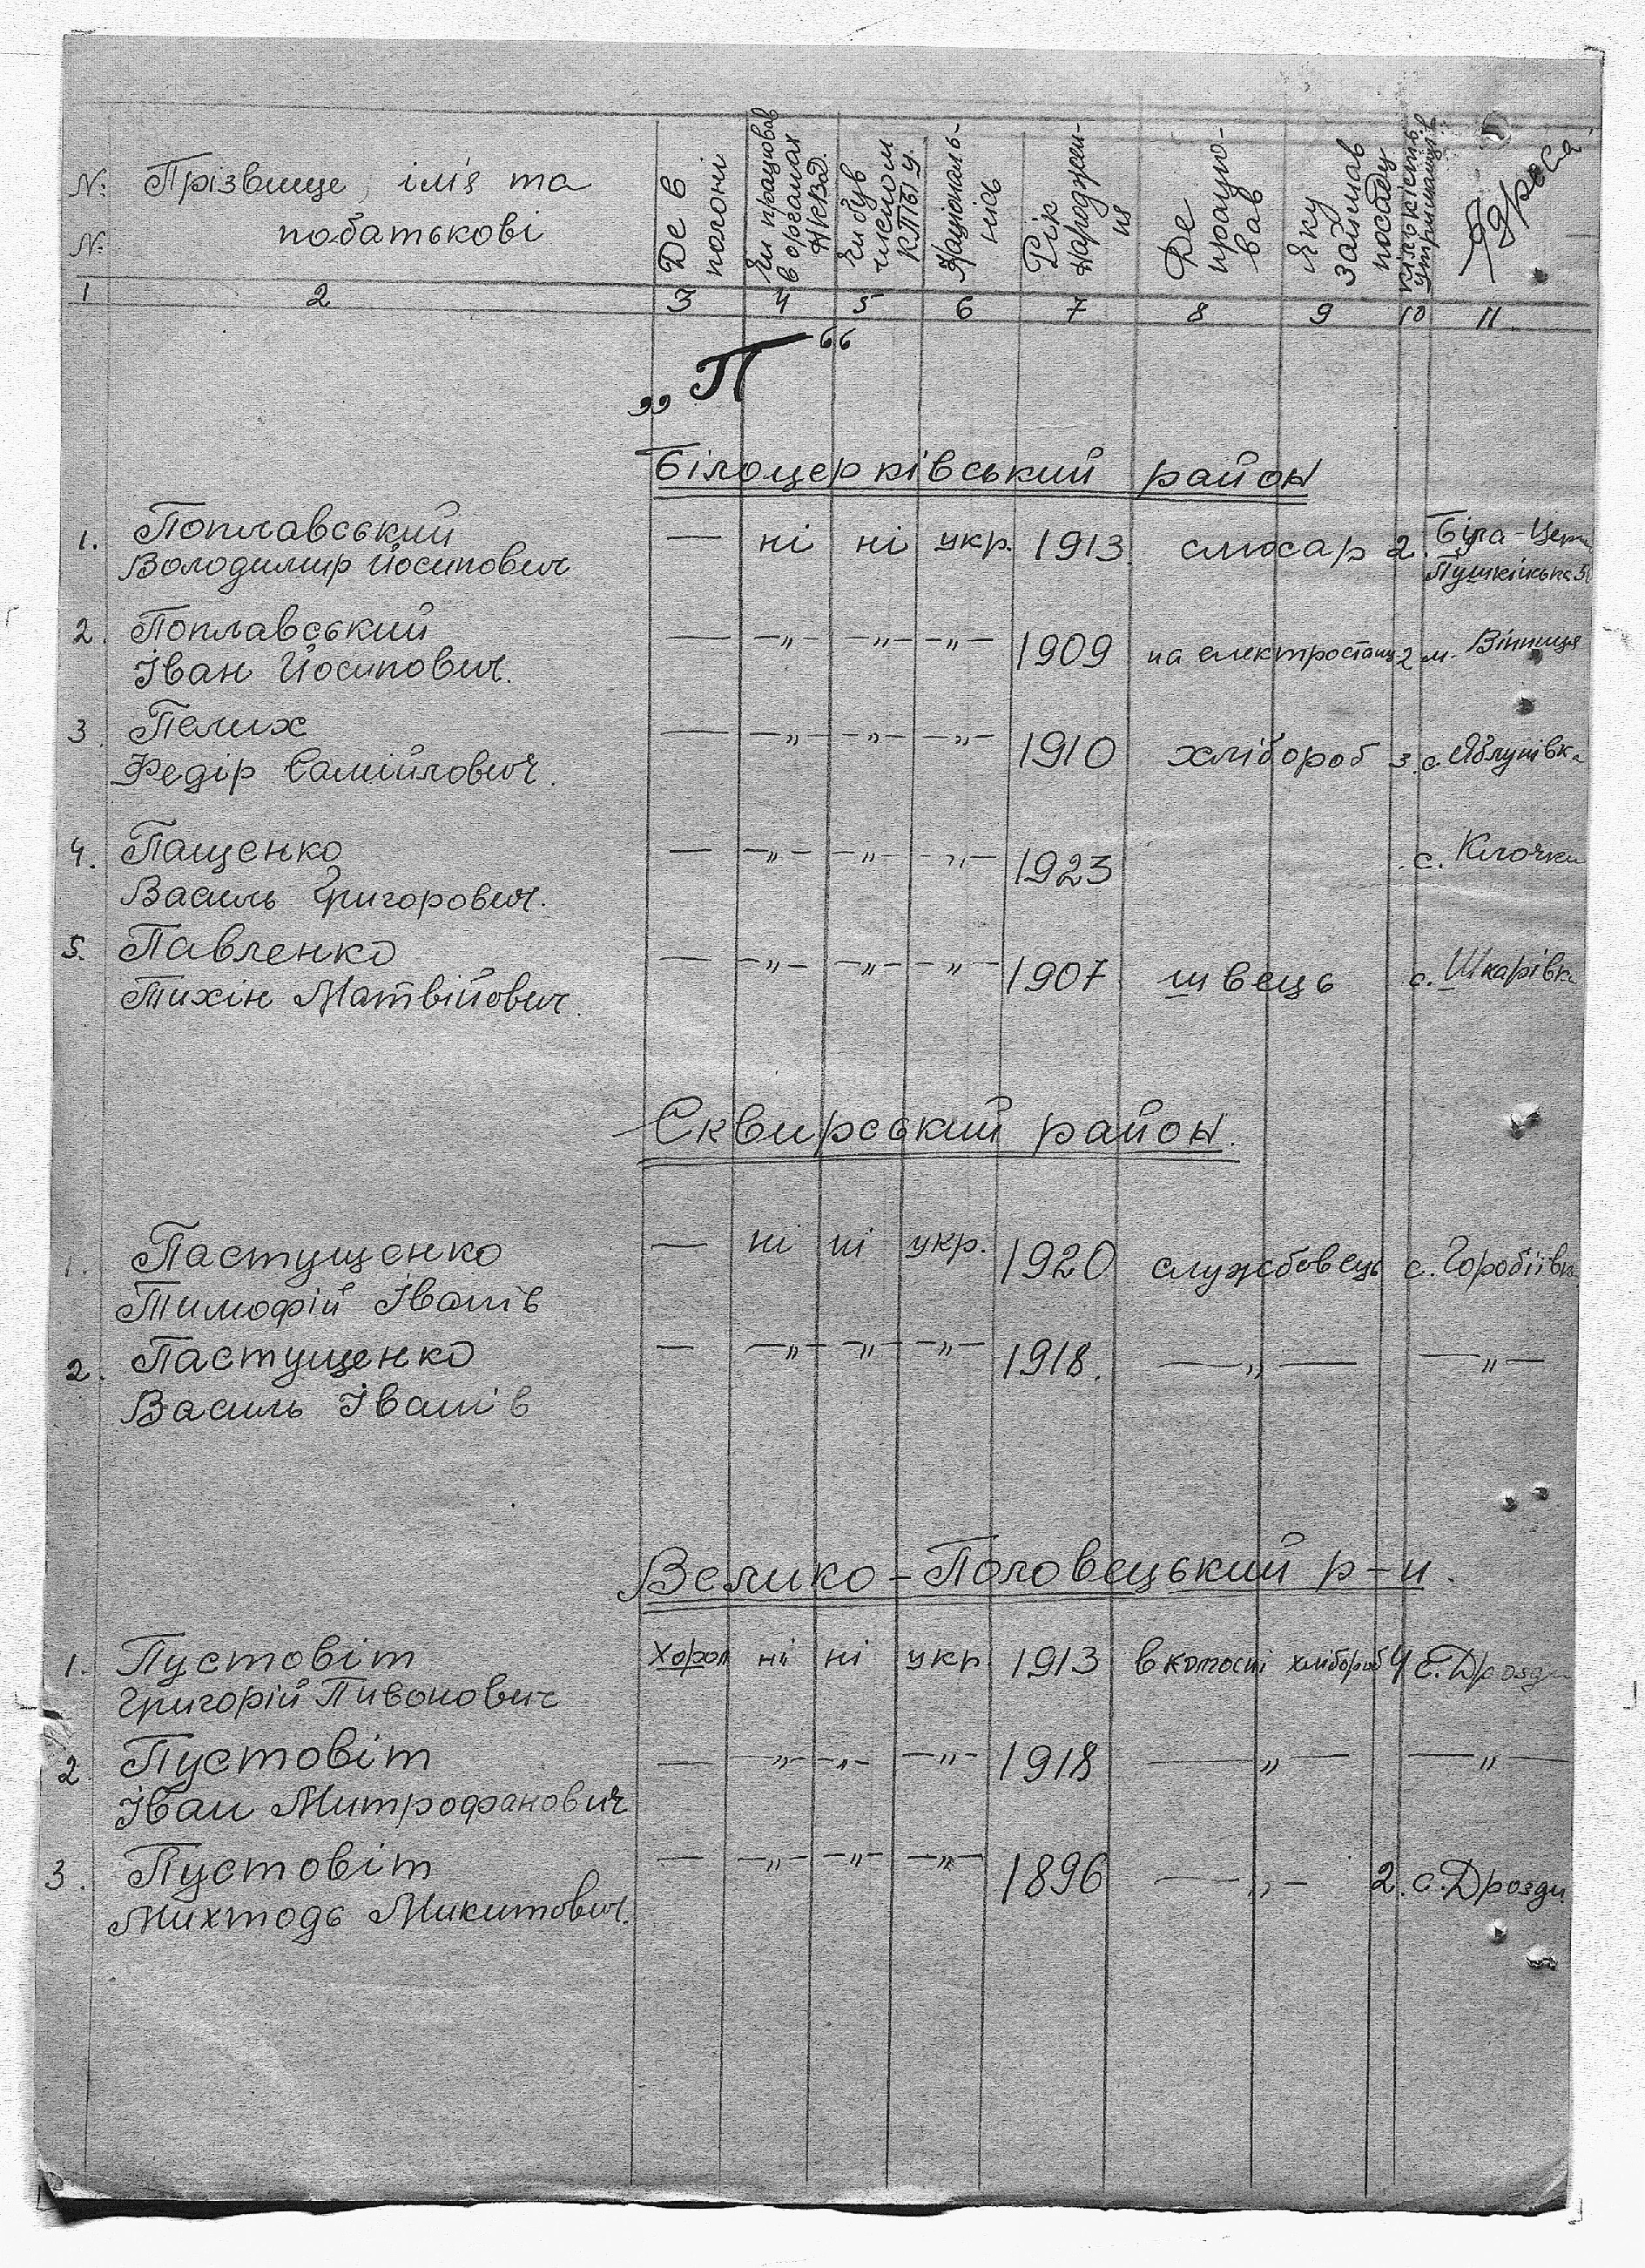 N: Прізвище, ім'я та
N: побатькові
Де в полоні
Чи працював в органах НКВД
Чи був членом КП(б)У.
Національність
Рік народження
Де працював
Яку займав посаду
Кількість утриманців
Адреса
1 2 3 4 5 6 7 8 9 10 11.
„П“
Білоцерківський район
1. Поплавський — ні ні укр. 1913 слюсар 2. Біла-Церк
Володимир Йосипович Пушкінська
2. Поплавський — —„— —„— —„— 1909 на електростанц 2 м. Вінниця
Іван Йосипович.
3. Пелих — —„— —„— —„— 1910 хлібороб 3 с. Яблунівка
Федір Самійлович.
4. Пащенко — —„— —„— —„— 1923 с. Клочки
Василь Григорович.
5. Павленко — —„— —„— —„— 1907 швець с. Шкарівка
Тихін Матвійович.
Сквирський район.
1. Пастущенко — ні ні укр. 1920 службовець с. Горобіївка
Тимофій Іванів
2. Пастущенко — —„— —„— —„— 1918. —„— —„—
Василь Іванів
Велико-Половецький р-н.
1. Пустовіт Хорол ні ні укр. 1913 в колгоспі хлібороб 4 с. Дрозди
Григорій Пивонович
2. Пустовіт — —„— —„— —„— 1918 —„— —„—
Іван Митрофанович
3. Пустовіт — —„— —„— —„— 1896 —„— 2. с. Дрозди
Микитович.